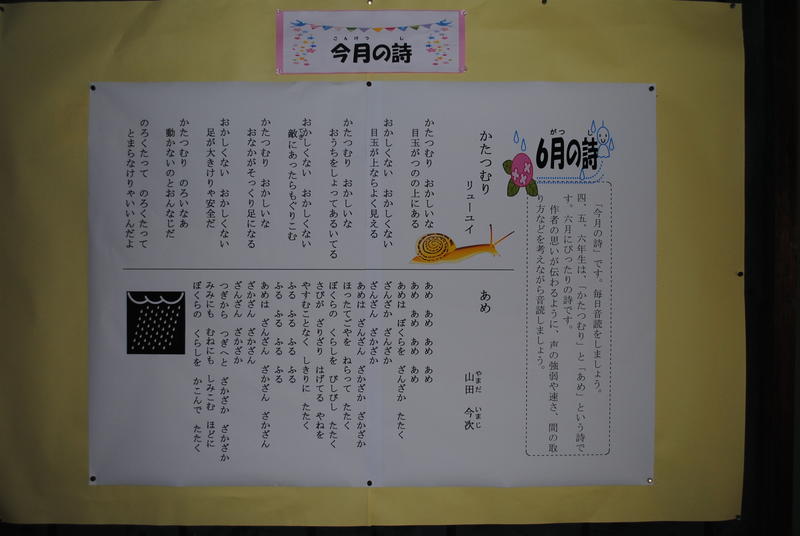 こんげつ し
今月の詩
がつ し
6月の詩
「今月の詩」です。毎日音読をしましょう。
四、五、六年生は、「かたつむり」と「あめ」という詩で
す。六月にぴったりの詩です。
作者の思いが伝わるように、声の強弱や速さ、間の取
り方などを考えながら音読しましょう。
かたつむり
リューユイ
かたつむり おかしいな
目玉がつのの上にある
おかしくない おかしくない
目玉が上ならよく見える
かたつむり おかしいな
おうちをしょってあるいてる
おかしくない おかしくない
敵にあったらもぐりこむ
かたつむり おかしいな
おなかがそっくり足になる
おかしくない おかしくない
足が大きけりゃ安全だ
かたつむり のろいなあ
動かないのとおんなじだ
のろくたって のろくたって
とまらなけりゃいいんだよ
あめ
やまだ いまじ
山田 今次
あめ あめ あめ あめ
あめ あめ あめ あめ
あめは ぼくらを ざんざか たたく
ざんざか ざんざか
ざんざん ざかざか
あめは ざんざん ざかざか ざかざか
ほったてごやを ねらって たたく
ぼくらの くらしを びしびし たたく
さびが ざりざり はげてる やねを
やすむことなく しきりに たたく
ふる ふる ふる ふる
ふる ふる ふる ふる
あめは ざんざん ざかざん ざかざん
ざかざん ざかざん
ざんざん ざかざか
つぎから つぎへと ざかざか ざかざか
みみにも むねにも しみこむ ほどに
ぼくらの くらしを かこんで たたく